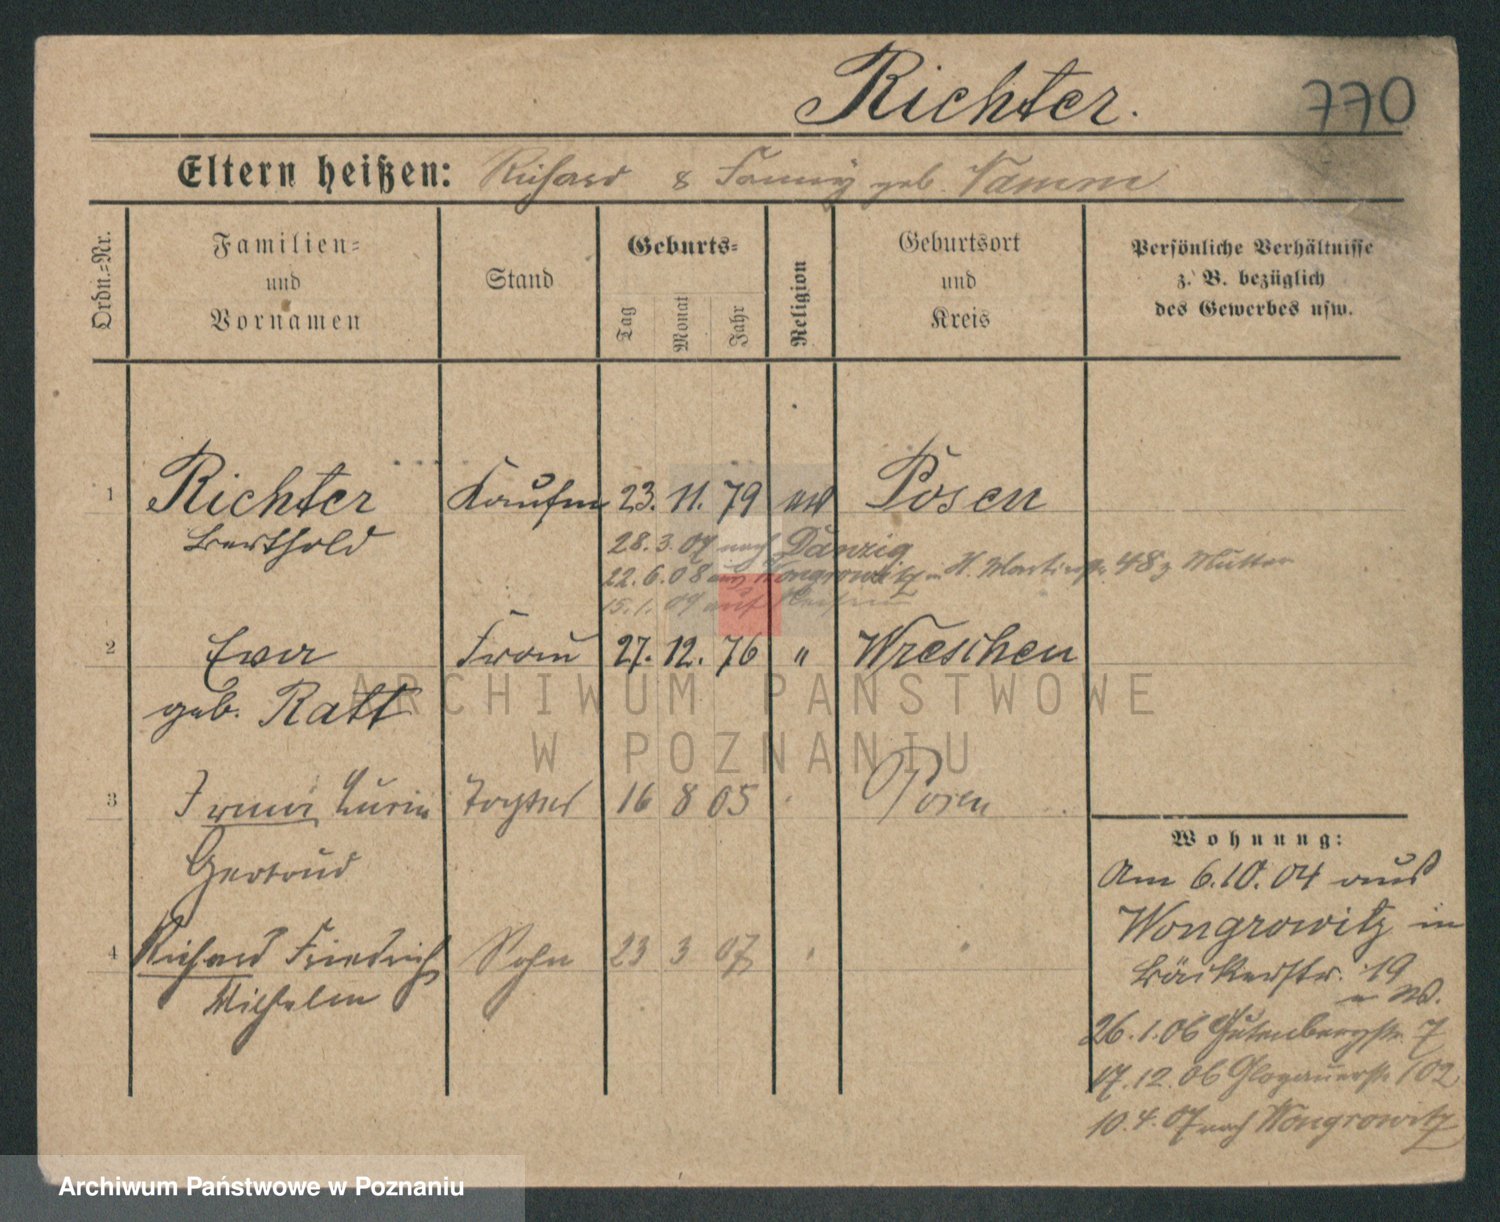 Richter. 770
Eltern heißen: Richard & Fanny geb. Namm
Ordn.=Nr.
Familien=
und
Vornamen
Stand
Geburts=
Tag
Monat
Jahr
Religion
Geburtsort
und
Kreis
Persönliche Verhältnisse
z. B. bezüglich
des Gewerbes usw.
1 Richter Kaufm 23. 11. 79 Posen
Berthold
28. 3. 07 nach Danzig
22. 6. 08 aus Wongrowitz Martinstr. 48 z Mutter
15. 1. 09 auf Reisen
2 Eva Frau 27. 12. 76 " Wreschen
geb. Ratt
3 Irma Tochter 16 8 05 Posen
Gertrud
4 Richard Friedrich Sohn 23 3 07
Wilhelm
Wohnung:
Am 6.10.04 aus
Wongrowitz in
Bäckerstr. 19
26.1.06 Gutenbergstr. 7
17.12.06 Glogauerstr. 102
10.4.07 nach Wongrowitz
ARCHIWUM PAŃSTWOWE
W POZNANIU
Archiwum Państwowe w Poznaniu